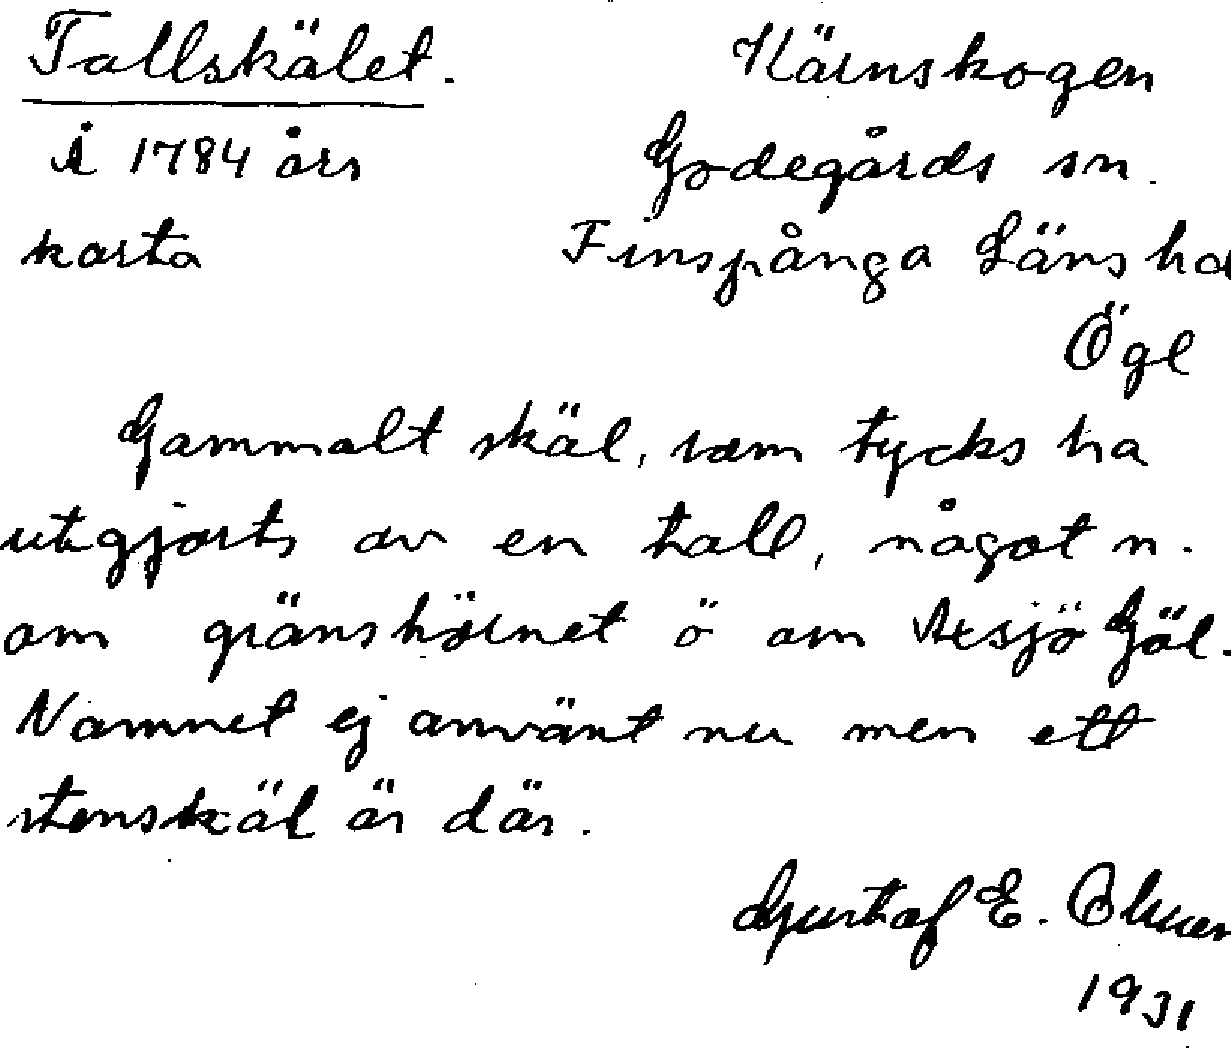 Tallskälet.
Kärnskogen
Å 1784 års
Godegårds sn.
karta
Finspånga Läns hd
Ögl
Gammalt skäl, som tycks ha
utgjorts av en tall, något n.
om gränshörnet ö om Axsjö Göl.
Namnet ej använt nu men ett
stenskäl är där.
Gustaf E.
1931